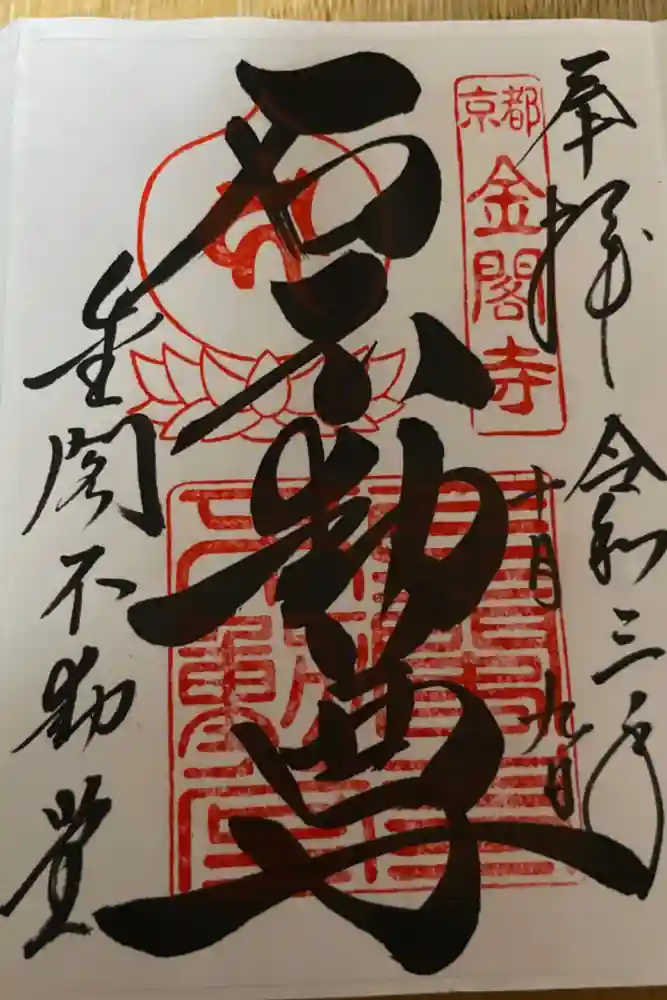 奉拝
令和三年
十月九日
京都
金閣寺
石不動尊
金閣不動堂